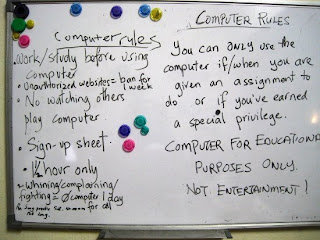 Computer rules
• work/study before using
computer
• Unauthorized websites = ban for
1 week
• No watching others
play computer
• Sign-up sheet
• 1/2 hour only
• whining/complaining/
fighting = 0 computer 1 day
for all
too long.
COMPUTER RULES
You can ONLY use the
computer if/when you are
given an assignment to
do or if you've earned
a special privilege.
COMPUTER FOR EDUCATIONAL
PURPOSES ONLY.
NOT ENTERTAINMENT!